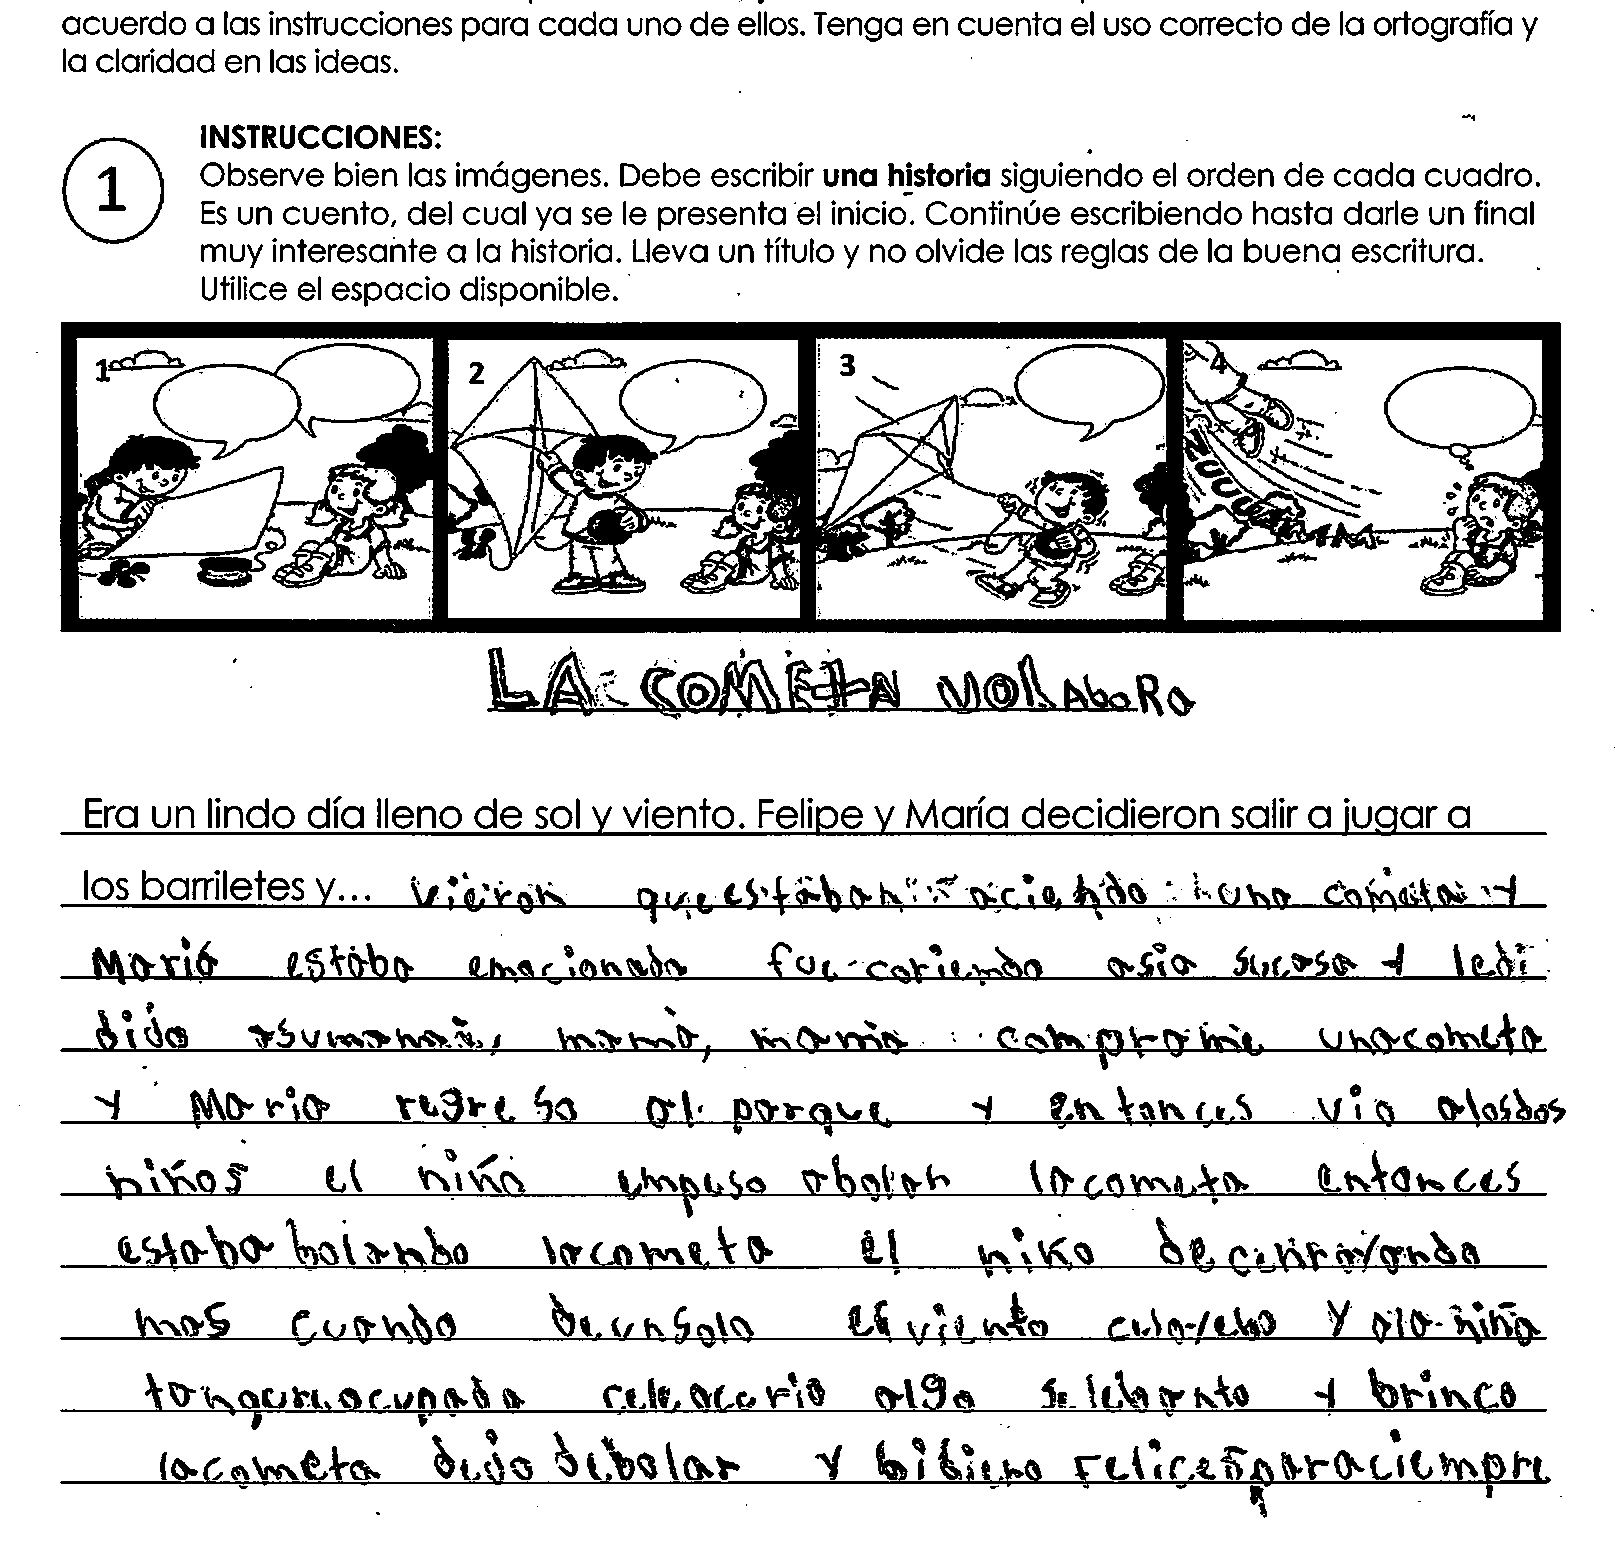 acuerdo a las instrucciones para cada uno de ellos. Tenga en cuenta el uso correcto de la ortografía y
la claridad en las ideas.
1
INSTRUCCIONES:
Observe bien las imágenes. Debe escribir una historia siguiendo el orden de cada cuadro.
Es un cuento, del cual ya se le presenta el inicio. Continúe escribiendo hasta darle un final
muy interesante a la historia. Lleva un título y no olvide las reglas de la buena escritura.
Utilice el espacio disponible.
1 2 3 4
LA COMETA VOLAboRa
Era un lindo día lleno de sol y viento. Felipe y María decidieron salir a jugar a
los barriletes y... vieron que estaban aciendo una cometa y
María estaba emocionada fue coriendo asia sucasa y ledi
dido asumamá, mamá, mamá comprame unacometa
y María regreso al parque y entonces vio alosdos
niños el niño empuso abolar lacometa entonces
estaba bolando lacometa el niño
mas cuando deunsolo el viento y ala niña
algo selebanto y brinco
lacometa dejo debolar y bibieno felices paraciempre